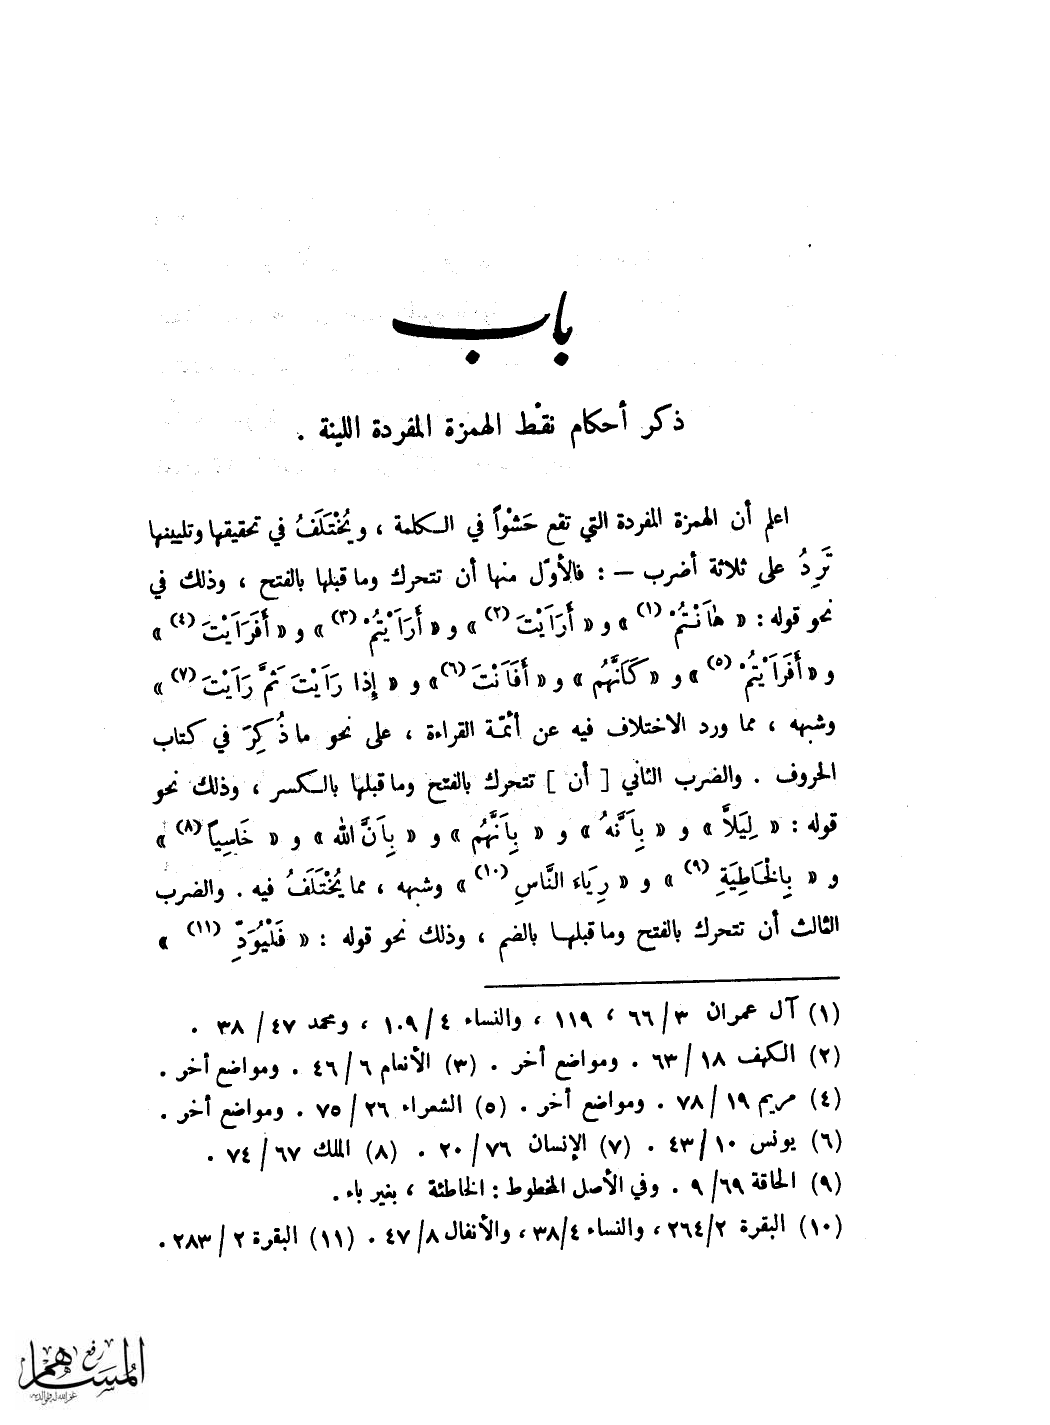 باب
ذكر أحكام نقْط الهمزة المفردة اللينة .
اعلم أن الهمزة المفردة التي تقع حَشْواً في الكلمة ، ويُخْتَلَفُ في تحقيقها وتليينها
تَرِدُ على ثلاثة أضرب – : فالأوّل منها أن تتحرك وما قبلها بالفتح ، وذلك في
نحو قوله : « هٰاَنْتُمْ (١) » و « أَرَاَيْتَ (٢) » و « أَرَاَيْتُمْ (٣) » و « أَفَرَاَيْتَ (٤) »
و « أَفَرَاَيْتُمْ (٥) » و « كَاَنَّهُم » و « أَفَاَنْتَ (٦) » و « إِذا رَاَيْتَ ثَمَّ رَاَيْتَ (٧) »
وشبهه ، مما ورد الاختلاف فيه عن أئمّة القراءة ، على نحو ما ذُكِرَ في كتاب
الحروف . والضرب الثاني [ أن ] تتحرك بالفتح وما قبلها بالكسر ، وذلك نحو
قوله : « لِيَلاَّ » و « بِاَنَّهُ » و « بِاَنَّهُم » و « بِاَنَّ الله » و « خَاسِياً (٨) »
و « بِالْخَاطِيَةِ (٩) » و « رِيَاءَ النَّاسِ (١٠) » وشبهه ، مما يُخْتَلَفُ فيه . والضرب
الثالث أن تتحرك بالفتح وما قبلها بالضم ، وذلك نحو قوله : « فَلْيُوَدِّ (١١) »
(١) آل عمران ٣/ ٦٦ ، ١١٩ ، والنساء ٤/ ١٠٩ ، ومحمد ٤٧/ ٣٨ .
(٢) الكهف ١٨/ ٦٣ . ومواضع أخر . (٣) الأنعام ٦/ ٤٦ . ومواضع أخر .
(٤) مريم ١٩/ ٧٨ . ومواضع أخر . (٥) الشعراء ٢٦/ ٧٥ . ومواضع أخر .
(٦) يونس ١٠/ ٤٣ . (٧) الإنسان ٧٦/ ٢٠ . (٨) الملك ٦٧/ ٧٤ .
(٩) الحاقة ٦٩/ ٩ . وفي الأصل المخطوط : الخاطئة ، بغير باء .
(١٠) البقرة ٢/ ٢٦٤ ، والنساء ٤/ ٣٨ ، والأنفال ٨/ ٤٧ . (١١) البقرة ٢/ ٢٨٣ .
رفع
المساهم